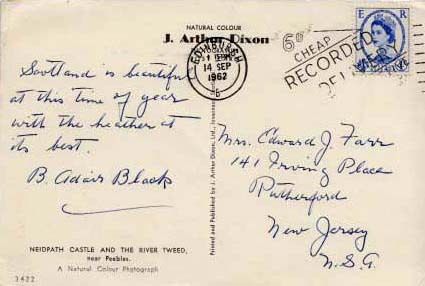 NATURAL COLOUR
J. Arthur Dixon
PHOTOGRAPH
EDINBURGH
14 SEP
1962
6
6D
CHEAP
RECORDED
DELIVERY
E R
Scotland is beautiful
at this time of year
with the heather at
its best.
B. Adair Black
Mrs. Edward J. Farr
141 Irving Place
Rutherford
New Jersey
U.S.A.
Printed and Published by J. Arthur Dixon, Ltd., Inverness
NEIDPATH CASTLE AND THE RIVER TWEED,
near Peebles.
A Natural Colour Photograph
3422